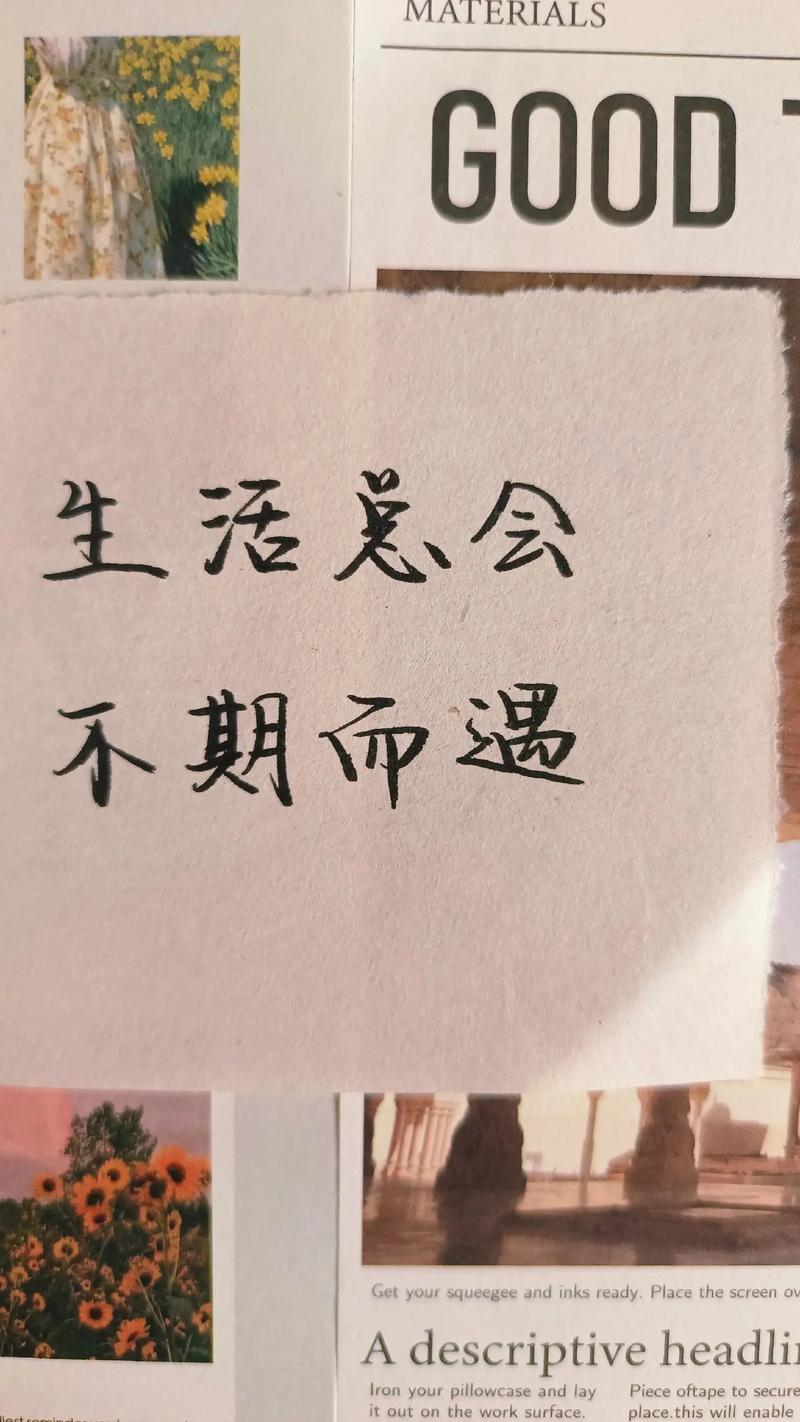 MATERIALS
GOOD
生活总会
不期而遇
Get your squeegee and inks ready. Place the screen
A descriptive
Iron your pillowcase and lay
it out on the work surface.
Piece oftape to secure
place.this will enable